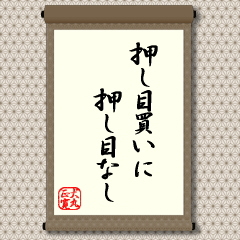 押し目買いに
押し目なし
大丸
正富